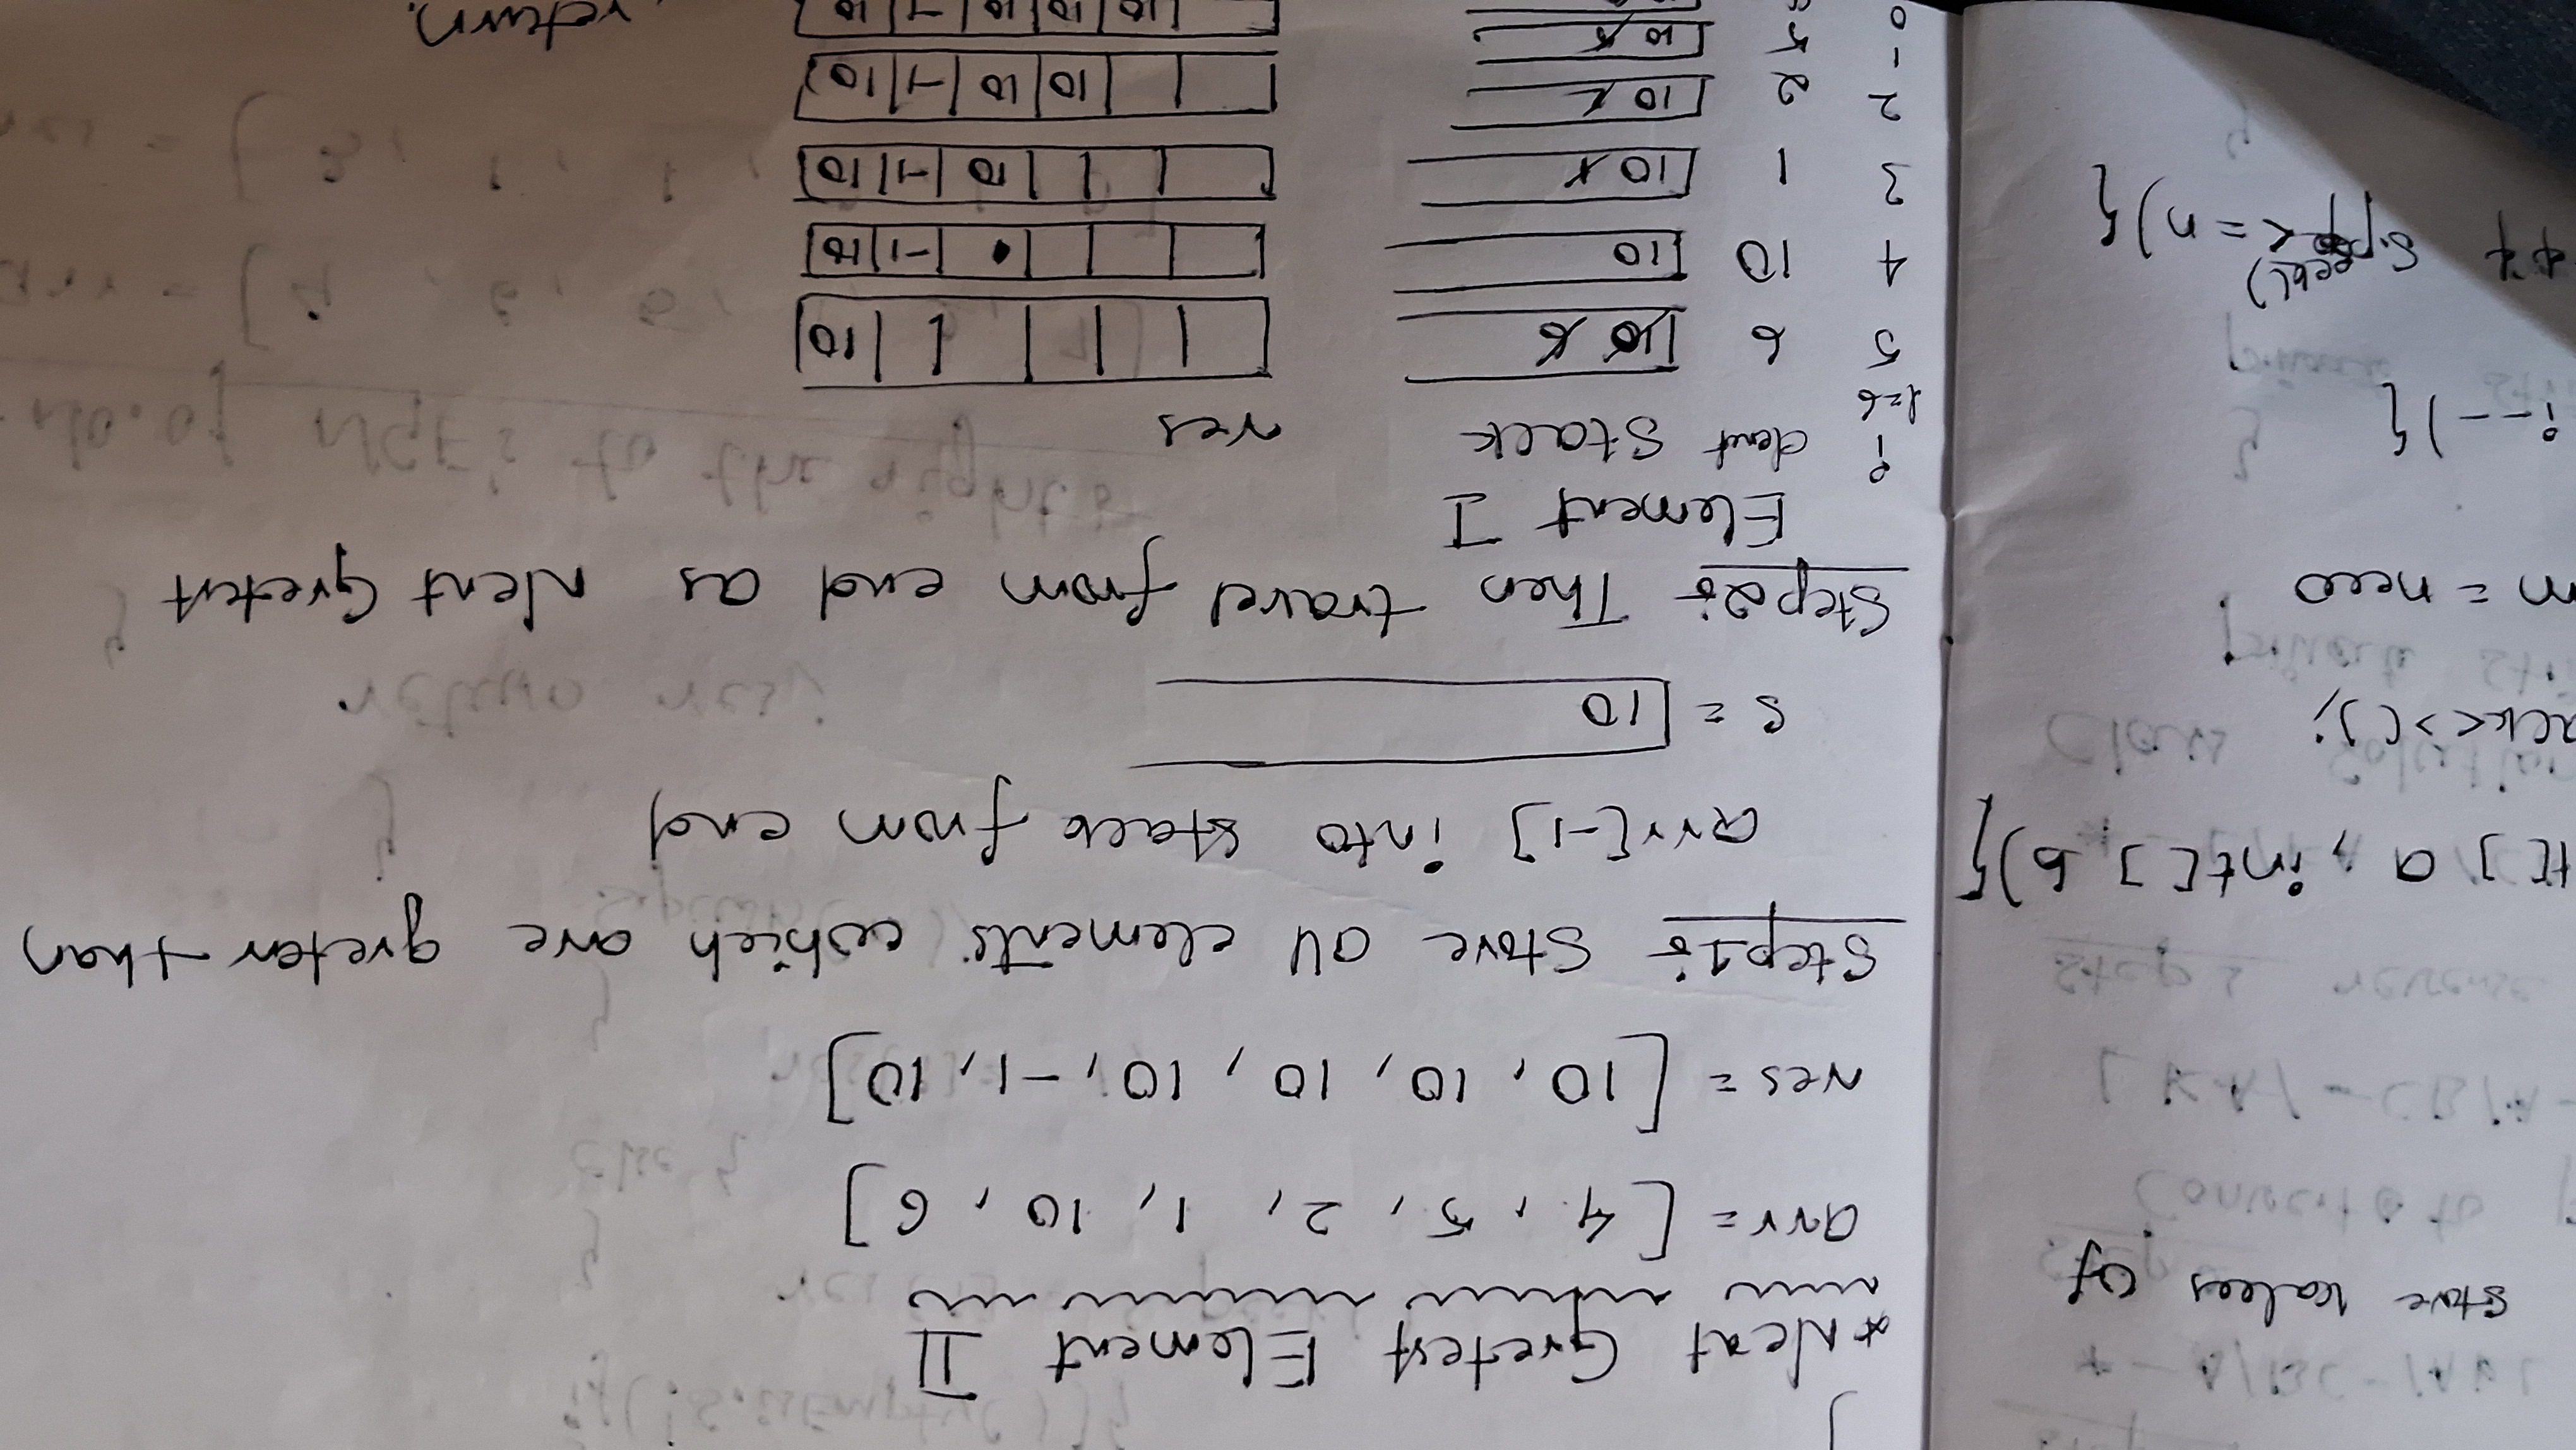 store values of
t[] a, int[] b){
ack<>();
m = new
i--){
s.peek() <= n){
*Next Gretest Element II
arr = [4, 5, 2, 1, 10, 6]
res = [10, 10, 10, 10, -1, 10]
Step1: Store all elements which are greter than
arr[-1] into stack from end
s = 10
Step2: Then travel from end as Nent Gretert
Element I
i
l=6
stack
res
5 6 10 6 10
4 10 10 -1 10
3 1 10 1 10 -1 10
2 2 10 2 10 10 -1 10
1 5 10 5 10 10 10 -1 10
0
return